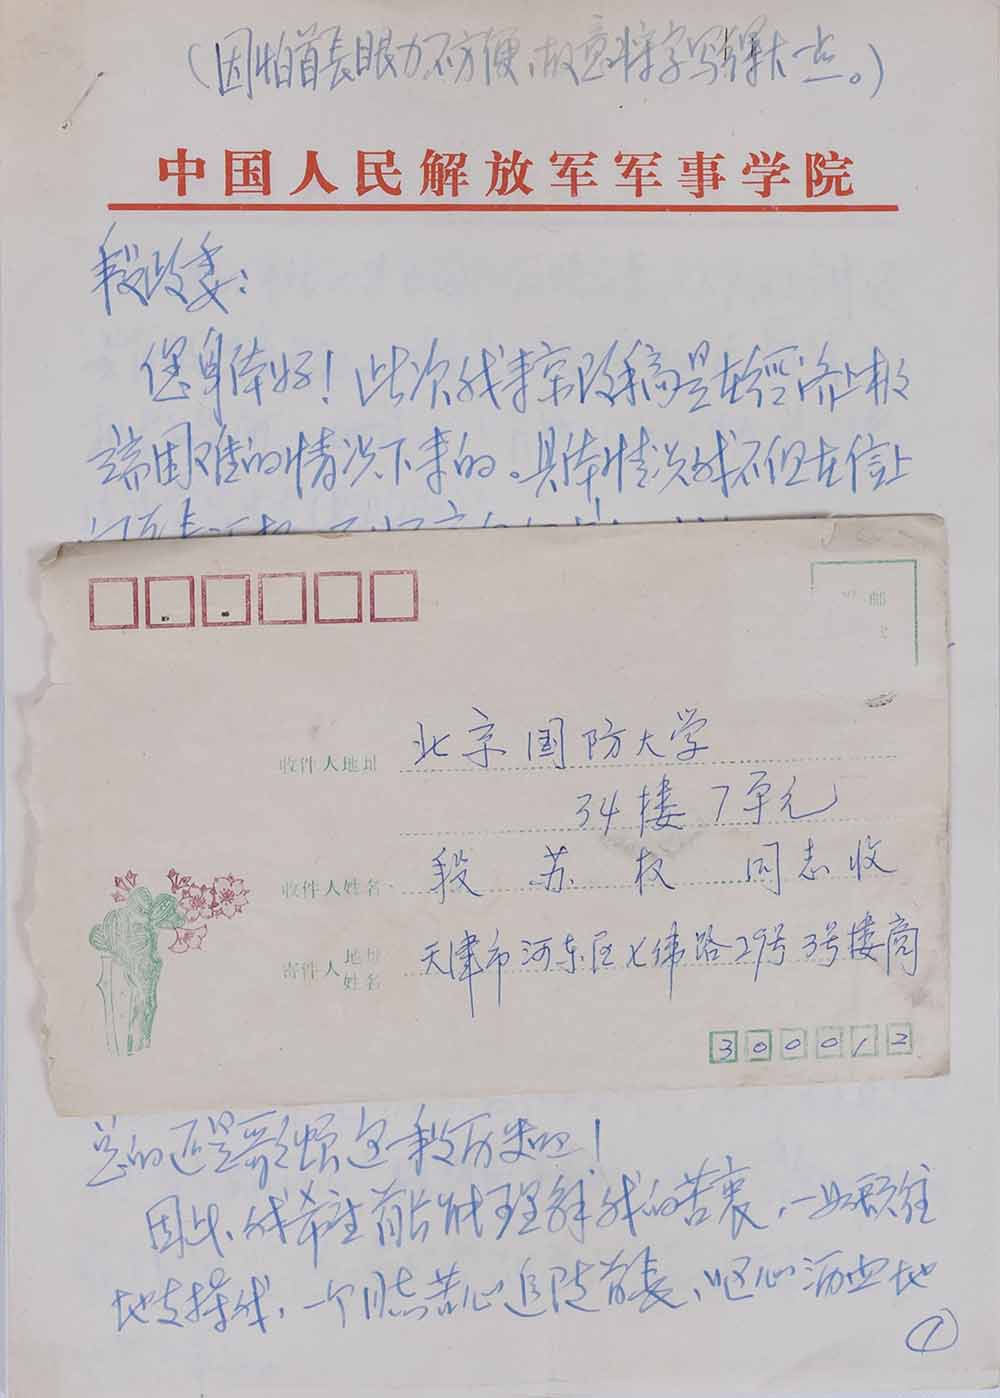 （因怕首长眼力不方便，故意将字写得大一点。）
中国人民解放军军事学院
段政委：
您身体好！此次我来京改稿是在经济上极
端困难的情况下来的。具体情况我不但在信上
收件人地址 北京国防大学
34楼7单元
收件人姓名 段苏权 同志收
寄件人地址姓名 天津市河东区七纬路29号3号楼商
300012
总的还是歌颂这一段历史吧！
因此，我希望首长能理解我的苦衷，一如既往
地支持我，一个 苦心追随首长、呕心沥血地
1